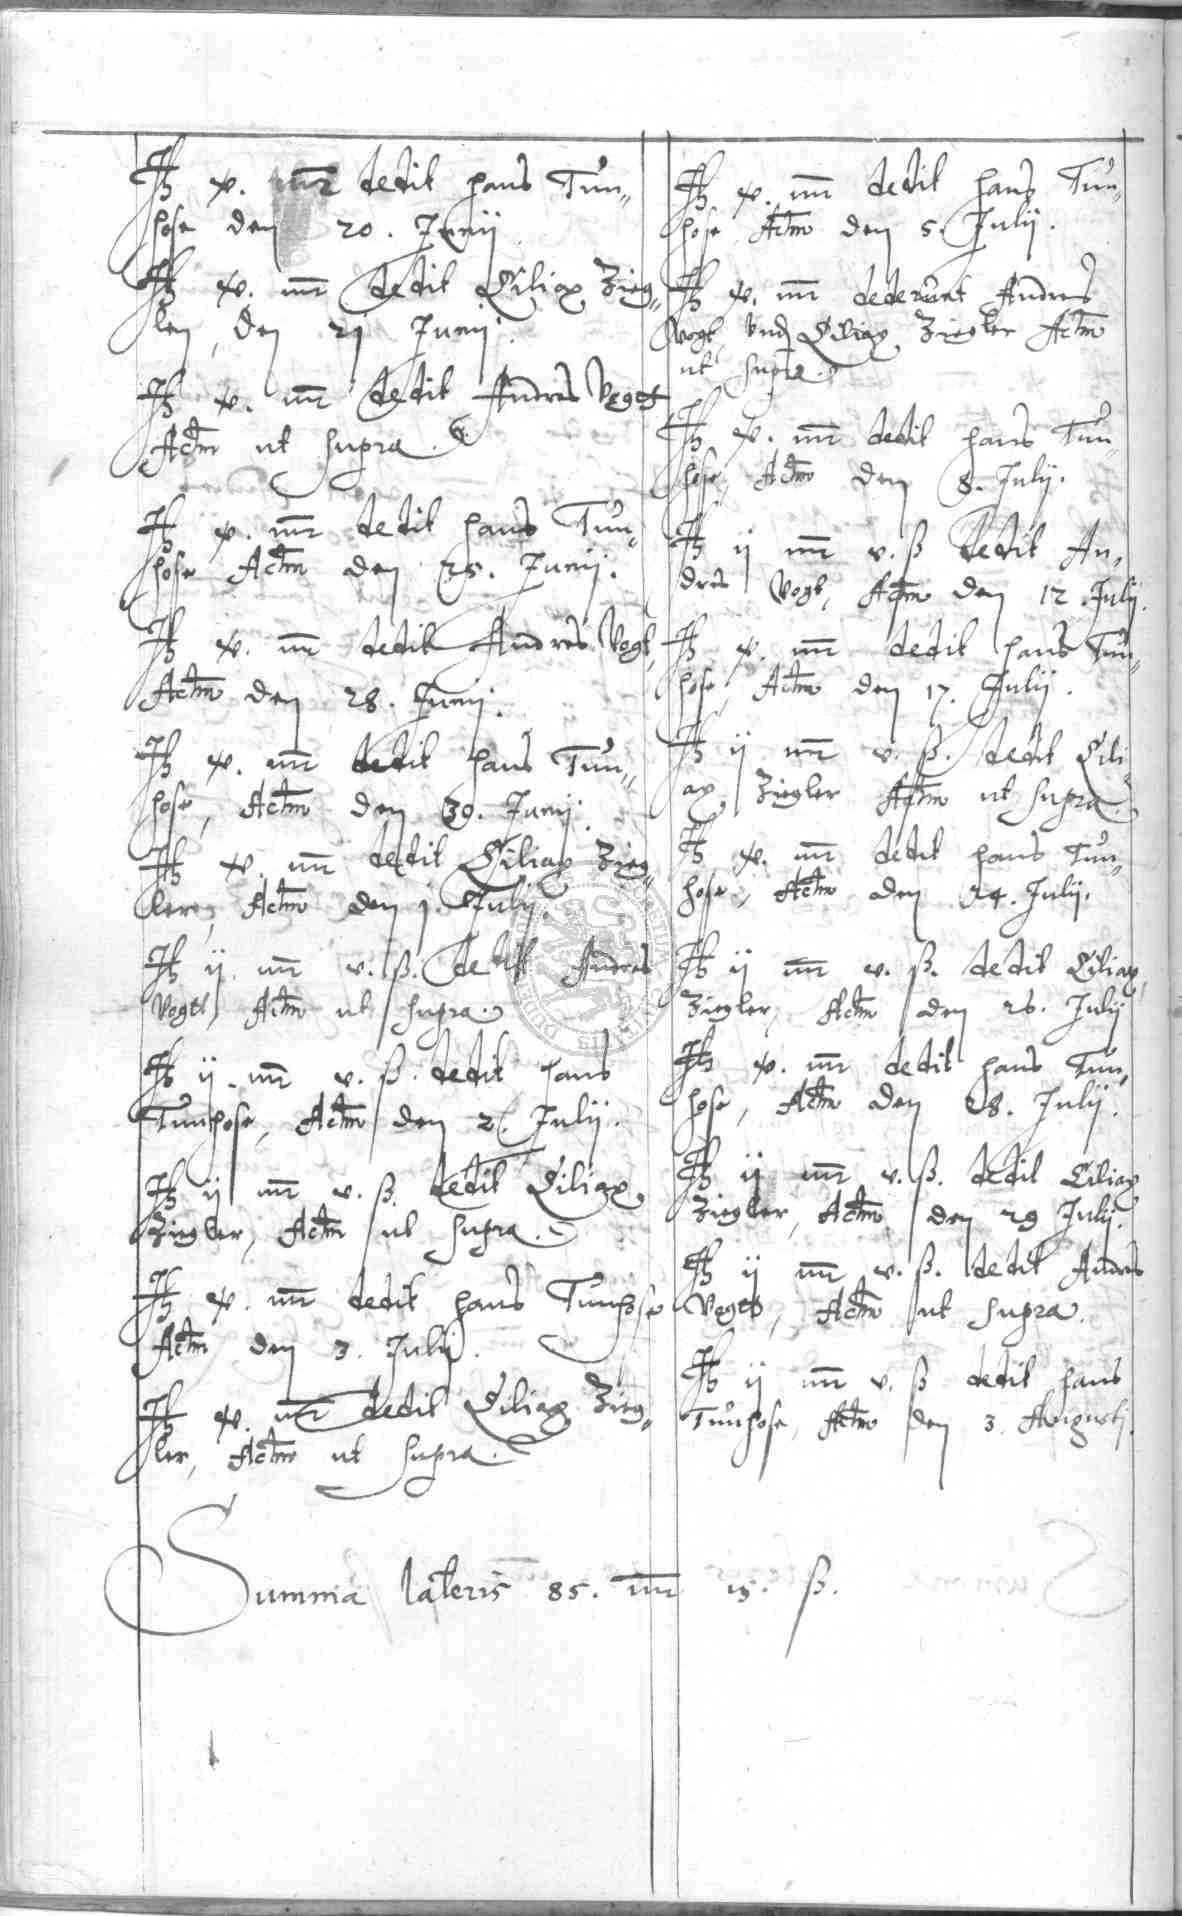 It x. mr dedit Hans Tun„
hose den 20. Junij
It x. mr dedit Ciliax Zieg„
ler, den 21 Junij.
It x. mr dedit Andres Vogtt
Actm ut supra.
It x. mr dedit Hans Tun„
hose Actm den 25. Junij.
It x. mr dedit Andres Vogt,
Actm den 28. Junij.
It x. mr dedit Hans Tun„
hose, Actm den 30. Junij.
It x. mr dedit Ciliax Zieg„
ler, Actm den 1. Julij.
It ij mr v. ß. dedit Andres
Vogtt, Actm ut supra.
It ij. mr v. ß. dedit Hans
Tunhose, Actm den 2. Julij.
It ij mr v. ß. dedit Ciliax
Ziegler, Actm ut supra.
It x. mr dedit Hans Tunhose
Actm den 3. Julij.
It x. mr dedit Ciliax Zieg„
ler, Actm ut supra.
It x. mr dedit Hans Tun„
hose, Actm den 5. Julij.
It x. mr dederunt Andres
Vogt, vnd Ciliax Ziegler Actm
ut supra.
It x. mr dedit Hans Tun„
hose, Actm den 8. Julij.
It ij mr v. ß dedit An„
dres Vogt, Actm den 12. Julij.
It x. mr dedit Hans Tun„
hose, Actm den 17. Julij.
It ij mr v. ß. dedit Cili
ax Ziegler Actm ut supra.
It x. mr dedit Hans Tun„
hose, Actm den 24. Julij.
It ij mr v. ß. dedit Ciliax
Ziegler, Actm den 26. Julij
It x. mr dedit Hans Tun„
hose, Actm den 28. Julij.
It ij mr v. ß. dedit Ciliax
Ziegler, Actm den 29 Julij.
It ij mr v. ß. dedit Andres
Vogtt, Actm ut supra.
It ij mr v. ß dedit Hans
Tunhose, Actm den 3. Augustj.
Summa lateris 85. mr ß.